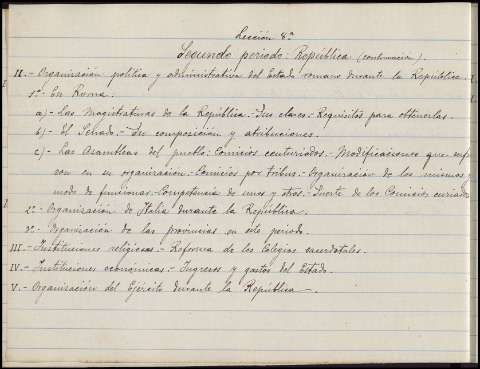 Lección 8ª
Segundo periodo: República (continuación).
II.- Organización política y administrativa del Estado romano durante la República.
1º- En Roma:
a)- Las Magistraturas de la República.- Sus clases.- Requisitos para obtenerlas.
b)- El Senado.- Su composición y atribuciones.
c)- Las Asambleas del pueblo: Comicios centuriados.- Modificaciones que sufrie-
ron en su organización.- Comicios por tribus.- Organización de los mismos
modo de funcionar.- Competencia de unos y otros.- Suerte de los Comicios curiados
2º- Organización de Italia durante la República.
3º- Organización de las provincias en este periodo.
III.- Instituciones religiosas.- Reforma de los Colegios sacerdotales.
IV.- Instituciones económicas.- Ingresos y gastos del Estado.
V.- Organización del Ejército durante la República -.